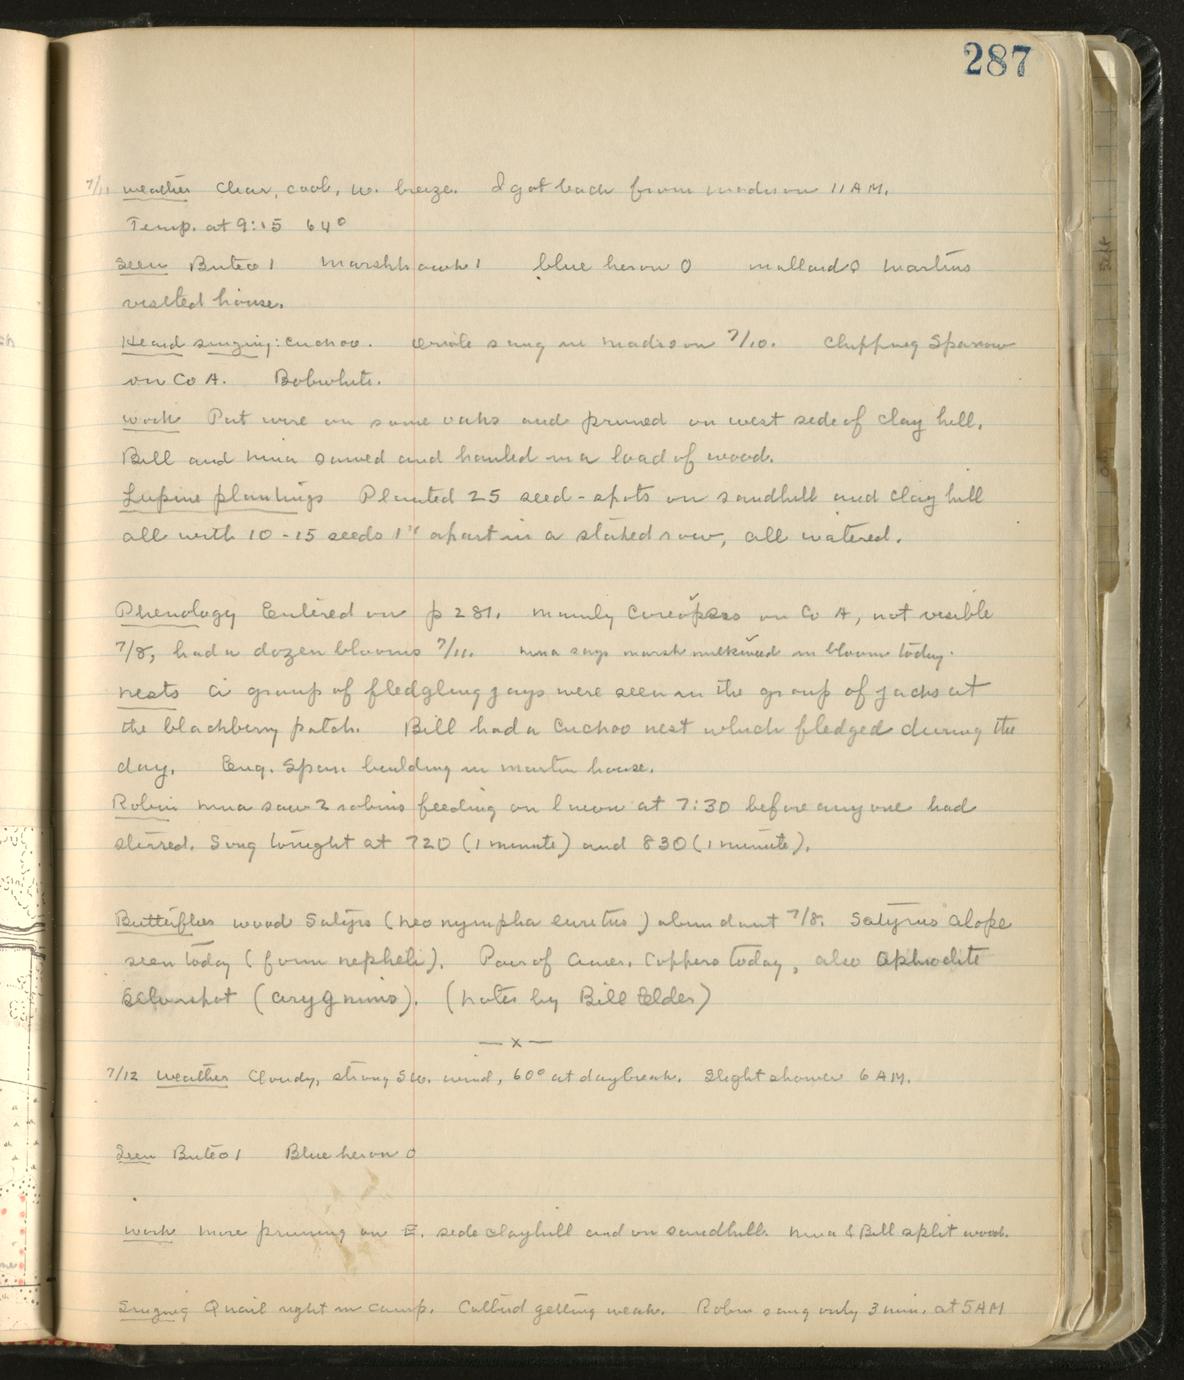 287
7/11 Weather Clear, cool, W. breeze. I got back from Madison 11 AM.
Temp. at 9:15 64°
Seen Buteo 1 Marsh hawk 1 blue heron 0 mallard 0 Martins
visited house.
Heard singing: Cuckoo. Oriole sang in Madison 7/10. Chipping Sparrow
on Co A. Bobwhite.
Work Put wire on some oaks and pruned on west side of clay hill.
Bill and Nina sawed and hauled in a load of wood.
Lupine plantings Planted 25 seed-spots on sandhill and clay hill
all with 10-15 seeds 1" apart in a staked row, all watered.
Phenology Entered on p 281. Mainly Coreopsis on Co A, not visible
7/8, had a dozen blooms 7/11. Nina says marsh milkweed in bloom today.
Nests A group of fledgling jays were seen in the group of jacks at
the blackberry patch. Bill had a Cuckoo nest which fledged during the
day. Eng. Spar. building in martin house.
Robin Nina saw 2 robins feeding on lawn at 7:30 before anyone had
stirred. Sang tonight at 720 (1 minute) and 830 (1 minute).
Butterflies Wood Satyrs (Neonympha euritus) abundant 7/8. Satyrus alope
seen today (form nephele). Pair of Amer. Coppers today, also Aphrodite
Silverspot (argynnis). (Notes by Bill Elder)
— x —
7/12 Weather Cloudy, strong SW. wind, 60° at daybreak. Slight shower 6 AM.
Seen Buteo 1 Blue heron 0
Work More pruning on E. side clayhill and on sandhill. Nina & Bill split wood.
Singing Quail right in camp. Catbird getting weak. Robin sang only 3 min. at 5 AM